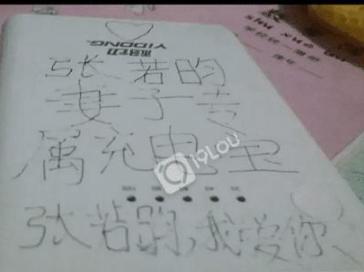 YIDONG
张若昀
妻子专
属充电宝
19LOU
张若昀,我爱你